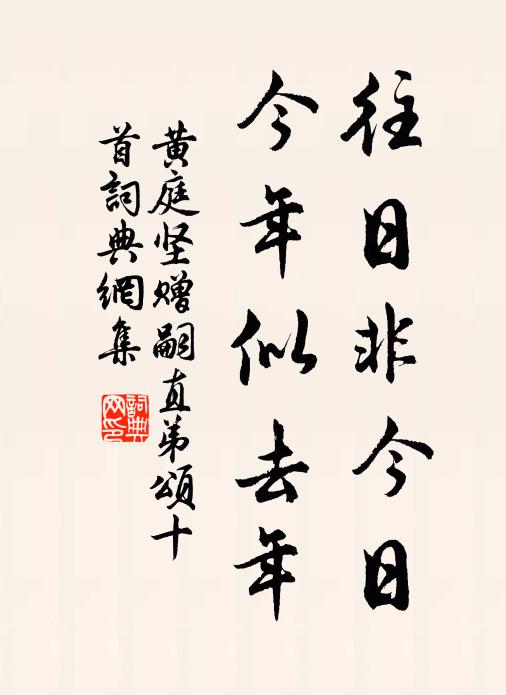 往日非今日
今年似去年
黄庭坚赠嗣直弟颂十
首詞典網集
詞典
网印